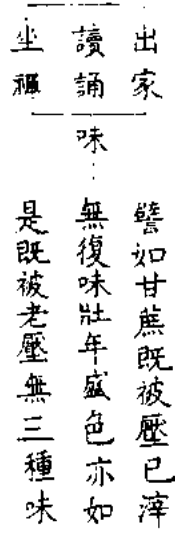 出家
讀誦
坐禪
味…
譬如甘蔗既被壓已滓
無復味壯年盛色亦如
是既被老壓無三種味